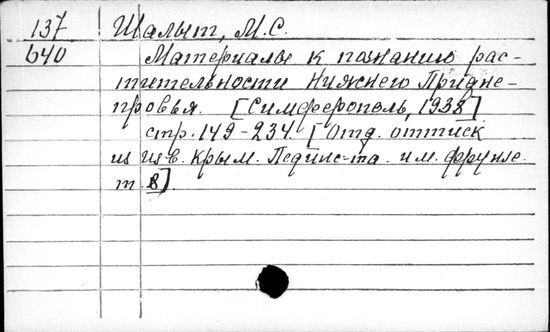 137 Шалыт, М.С.
640 Материалы к познанию рас-
тительности Нижнего Придне-
провья. [Симферополь, 1938]
стр. 149-234. [Отд. оттиск
из Изв. Крым. Пединс-та. им. Фрунзе.
т. 8].